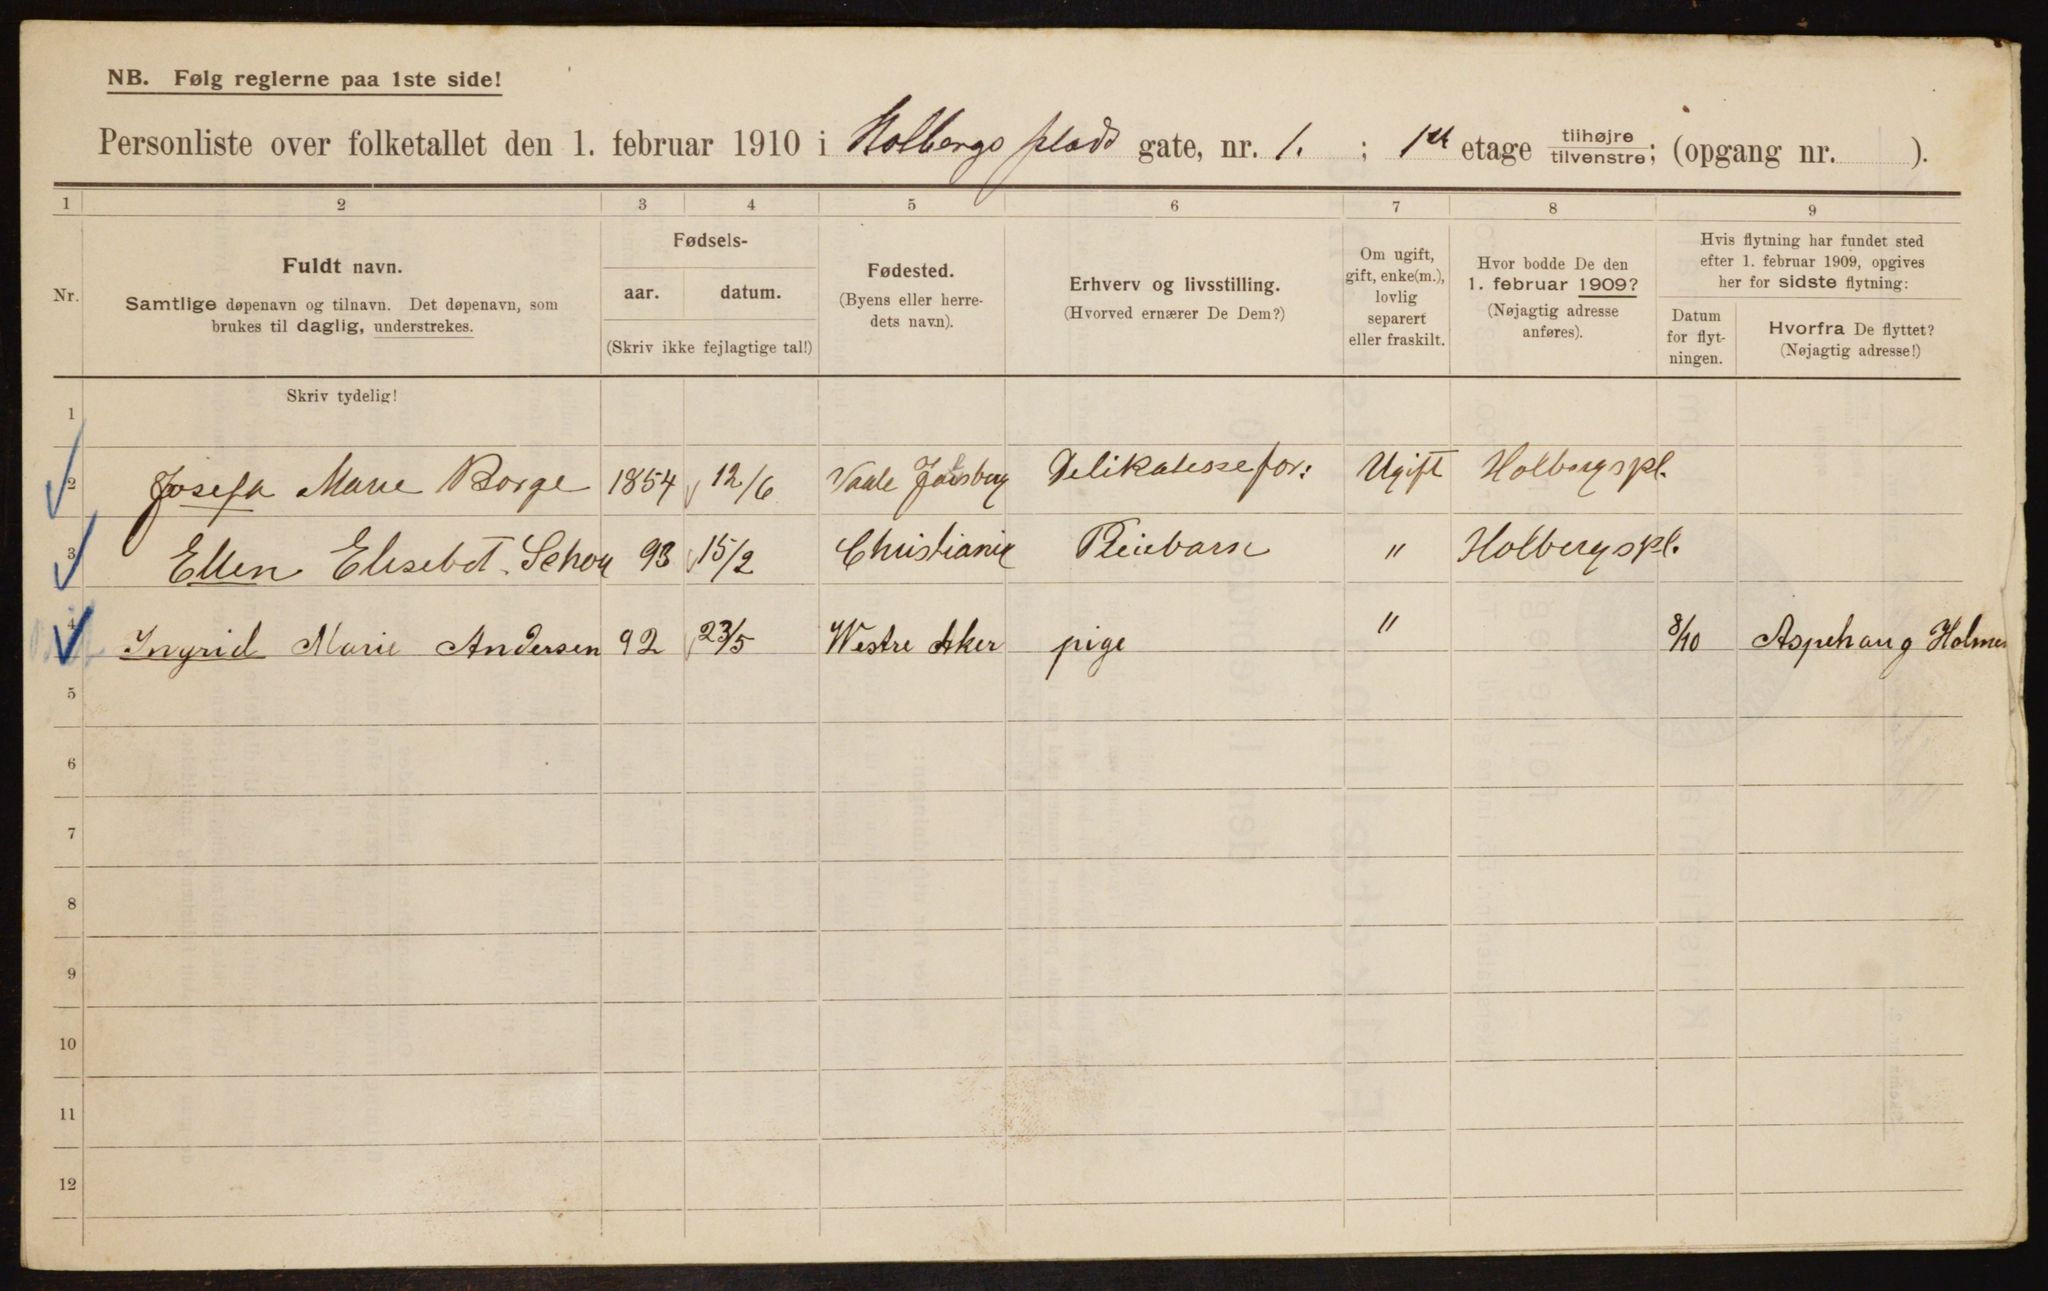 NB. Følg reglerne paa 1ste side!
Personliste over folketallet den 1. februar 1910 i Holbergs plads gate, nr. 1. ; 1st etage tilhøjre/tilvenstre; (opgang nr. ).
1 2 3 4 5 6 7 8 9
Nr.
Fuldt navn.
Samtlige døpenavn og tilnavn. Det døpenavn, som
brukes til daglig, understrekes.
Fødsels-
aar. datum.
(Skriv ikke fejlagtige tal!)
Fødested.
(Byens eller herre-
dets navn).
Erhverv og livsstilling.
(Hvorved ernærer De Dem?)
Om ugift,
gift, enke(m.),
lovlig
separert
eller fraskilt.
Hvor bodde De den
1. februar 1909?
(Nøjagtig adresse
anføres).
Hvis flytning har fundet sted
efter 1. februar 1909, opgives
her for sidste flytning:
Datum
for flyt-
ningen.
Hvorfra De flyttet?
(Nøjagtig adresse!)
Skriv tydelig!
1
2 Josefa Marie Borge 1854 12/6 Vaale Delikatessefor: Ugift Holbergspl.
3 Ellen Elisebet Schou 93 15/2 Christiania Pleiebarn " Holbergspl.
4 Ingrid Marie Andersen 92 23/5 Westre Aker pige " 8/10 Aspehaug Holmen
5
6
7
8
9
10
11
12